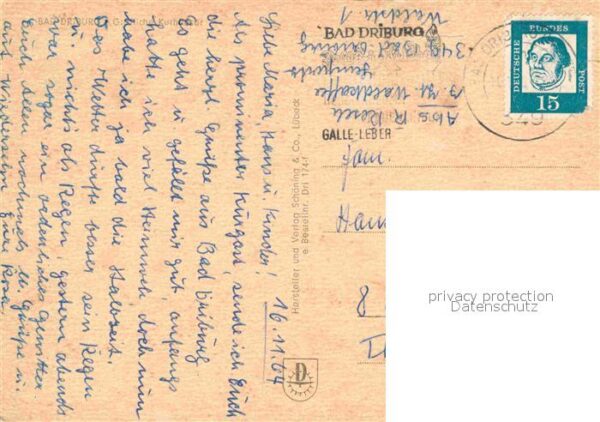 BAD DRIBURG
Liebe Maria, Hans u. Kinder! 16.11.64
Als prominenter Kurgast, sende ich Euch
die herzl. Grüße aus Bad Driburg
Es geht u. gefällt mir gut, anfangs
hatte ich viel Heimweh doch nun
habe ich ja bald die Halbzeit.
Das Wetter dürfte besser sein Regen
u. nichts als Regen, gestern abends
war sogar ein ordentliches Gewitter.
Euch allen nochmals lb. Grüße u.
auf Wiedersehen Eure
Hersteller und Verlag Schöning & Co., Lübeck
e Bestellnr. Dri 174
D
Abs. R.
349 Bad Driburg
Waldstr. 1
BAD DRIBURG
GALLE-LEBER
349
DEUTSCHE BUNDESPOST
15
Fam.
8
privacy protection
Datenschutz